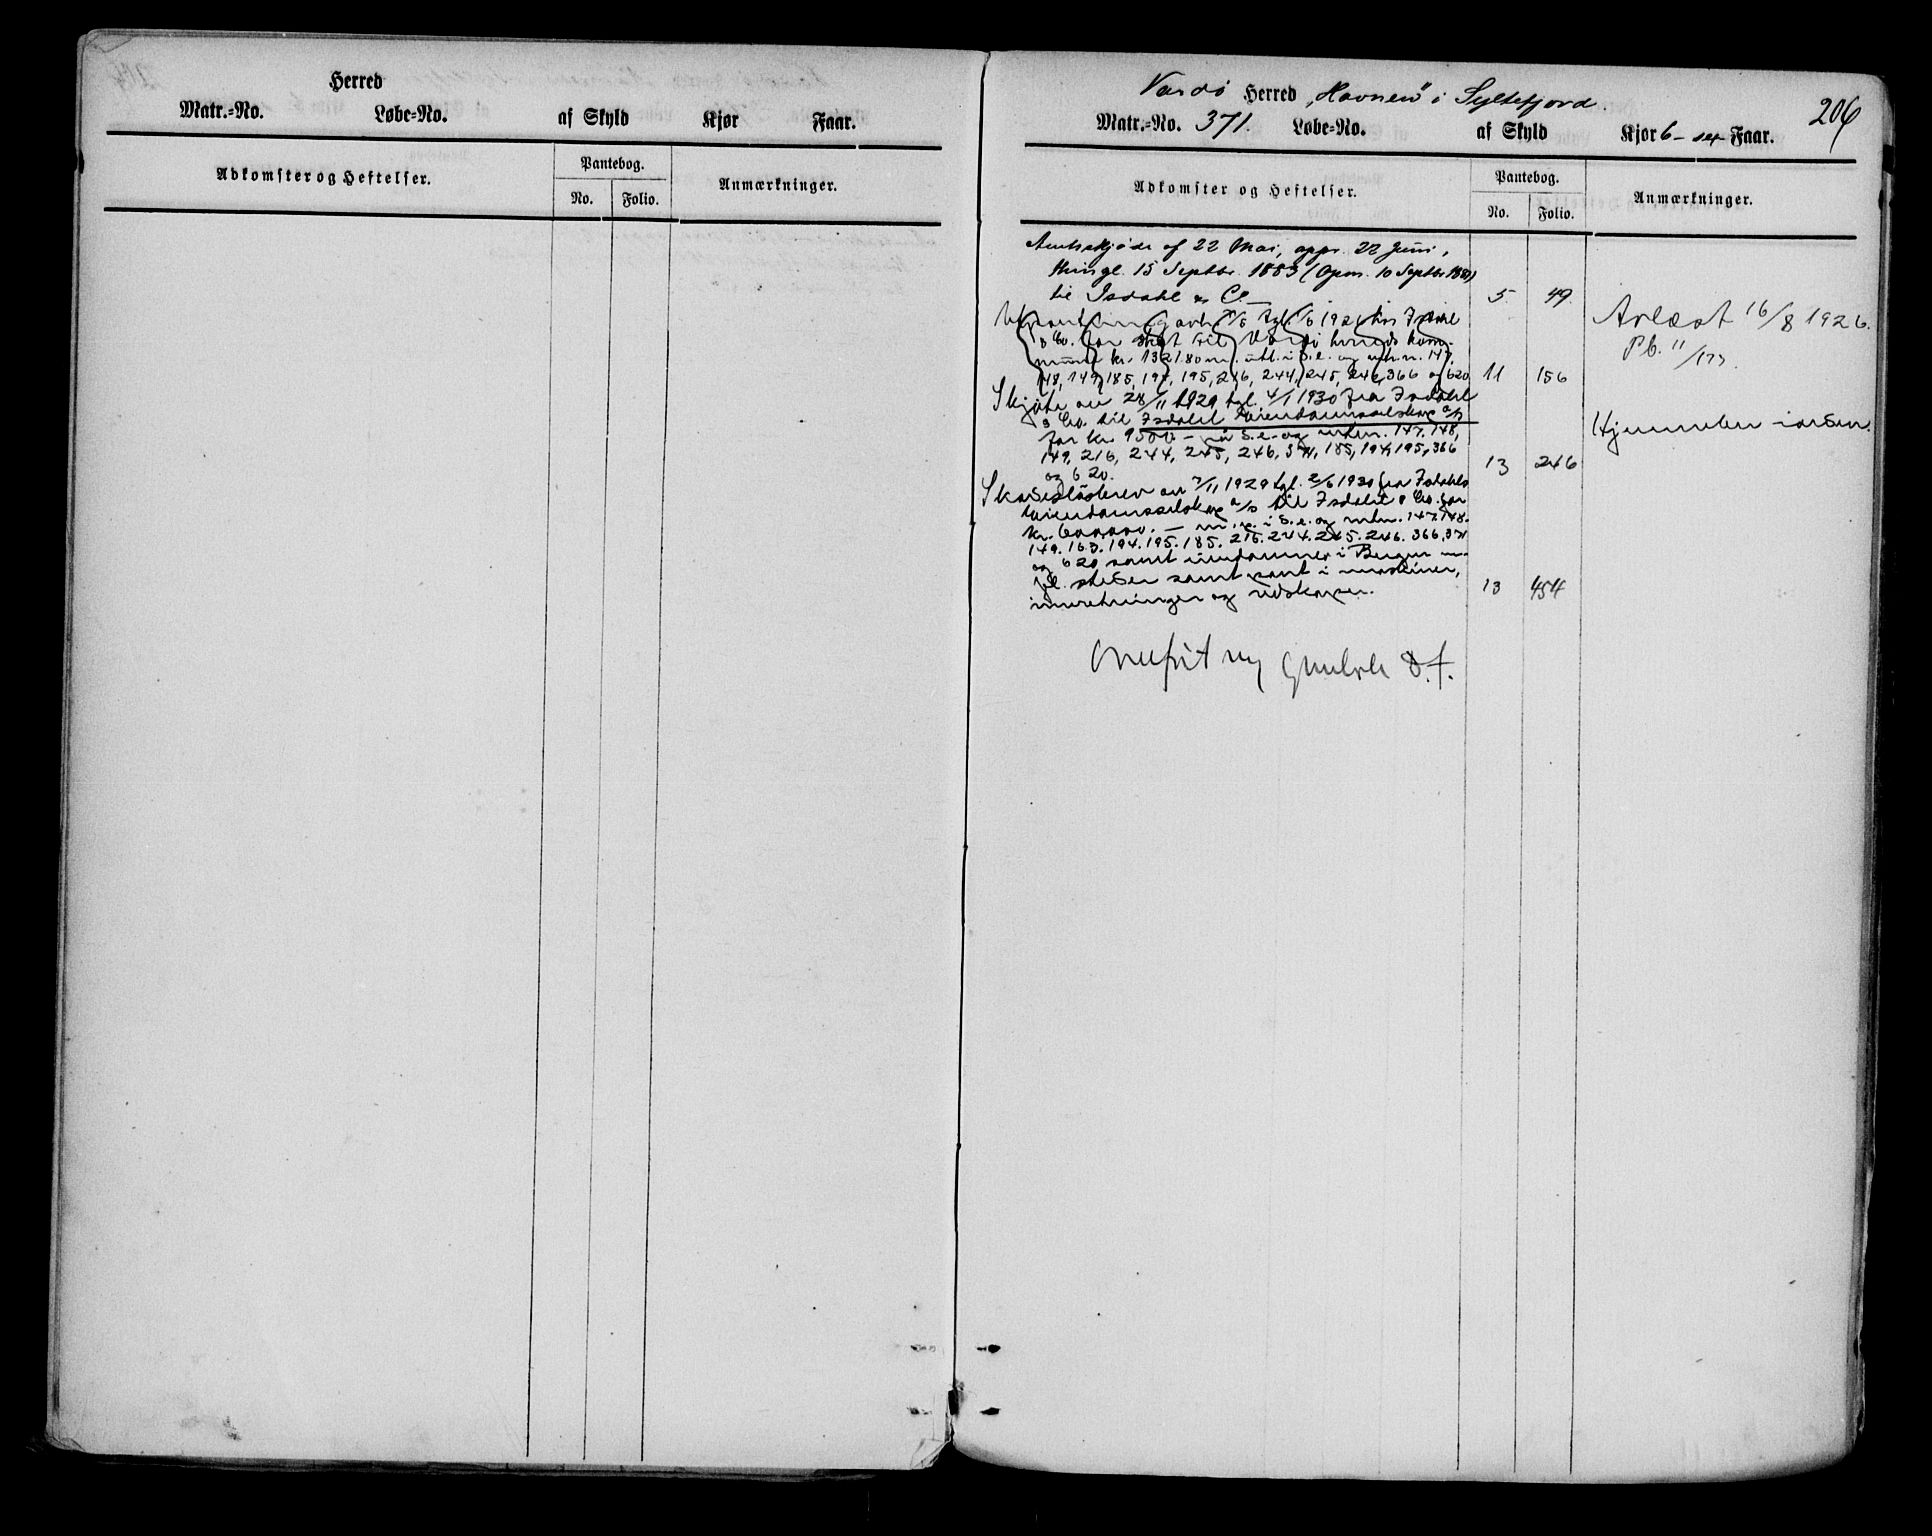 Herred
Matr.=No. Løbe=No. af Skyld Kjør Faar.
Adkomster og Heftelser.
Pantebog.
No. Folio.
Anmærkninger.
Vardö Herred „Havnen" i Syltefjord.
206
Matr.=No. 371. Løbe=No. af Skyld Kjør 6 - sex Faar.
Adkomster og Heftelser.
Pantebog.
No. Folio.
Anmærkninger.
Amtsskjøde af 22 Mai, appr. 22 Juni,
thingl. 15 Septbr. 1883 (Opm. 10 Septbr 1881)
til Isdahl & Co. 5 49.
Utpantning avh. tgl. 1926 hos Isdahl
& Co. for skat til Vardö herreds kom-
mune kr. 1321.80 m. utl. i s.e. og mtr.n. 147,
148, 149, 185, 194, 195, 216, 244, 245, 246, 366 og 620 11 156
Avlæst 16/8 1926.
Pb. 11/177
Skjøte av 28/11 1929 tgl. 4/1 1930 fra Isdahl
& Co. til Isdahl Eiendomsselskap a/s
for kr. 9500 - på s.e. og mtrn. 147, 148,
149, 216, 244, 245, 246, 371, 185, 194, 195, 366
og 620. 13 246
Hjemmelen i orden.
Skadesløsbrev av 7/11 1929 tgl. 2/6 1930 fra Isdahls
Eiendomsselskap a/s til Isdahl & Co. for
kr. 600000. - m. p. i s.e. og mtrn. 147. 148.
149. 163. 194. 195. 185. 216. 244. 245. 246. 366, 371
og 620 samt eiendommer i Bergen m.
fl. steder samt pant i maskiner,
innretninger og redskaper. 13 454
Overført ny